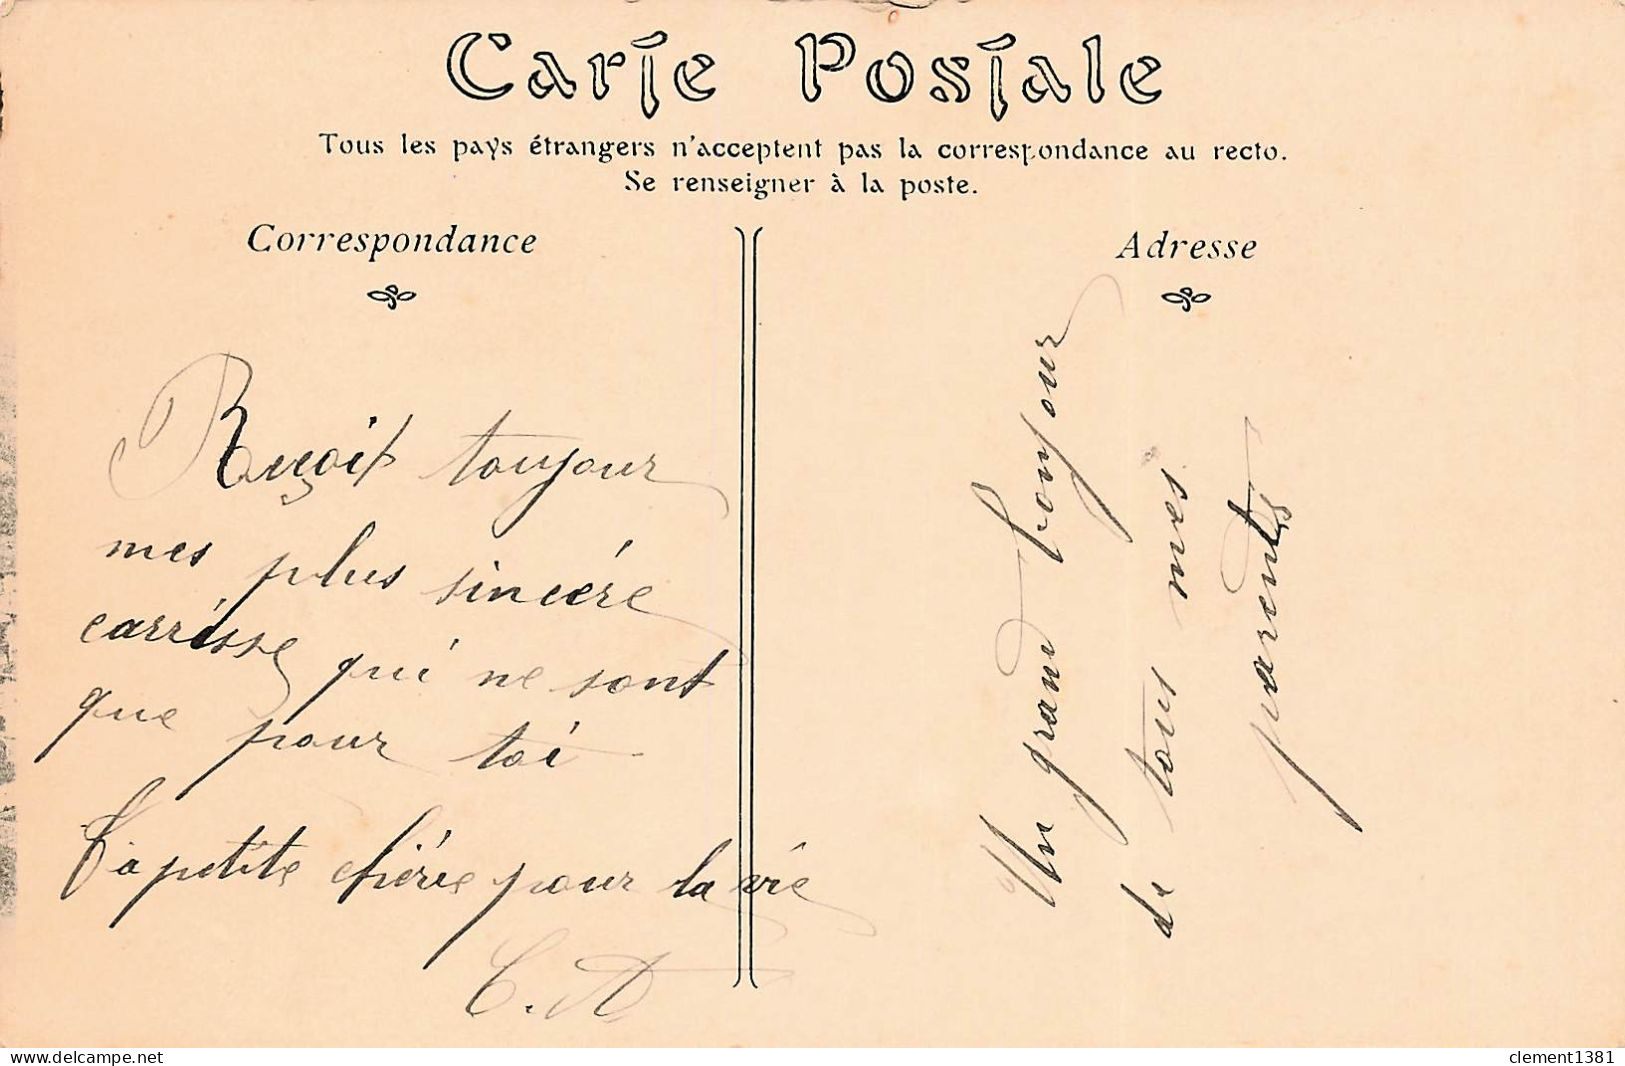 Carte Postale
Tous les pays étrangers n'acceptent pas la correspondance au recto.
Se renseigner à la poste.
Correspondance
Adresse
Reçoit toujour
mes plus sincére
carrésse qui ne sont
que pour toi
Ta petite chérie pour la vie
C. A
Un grand bonjour
de tous mes
parents
delcampe.net
clement1381